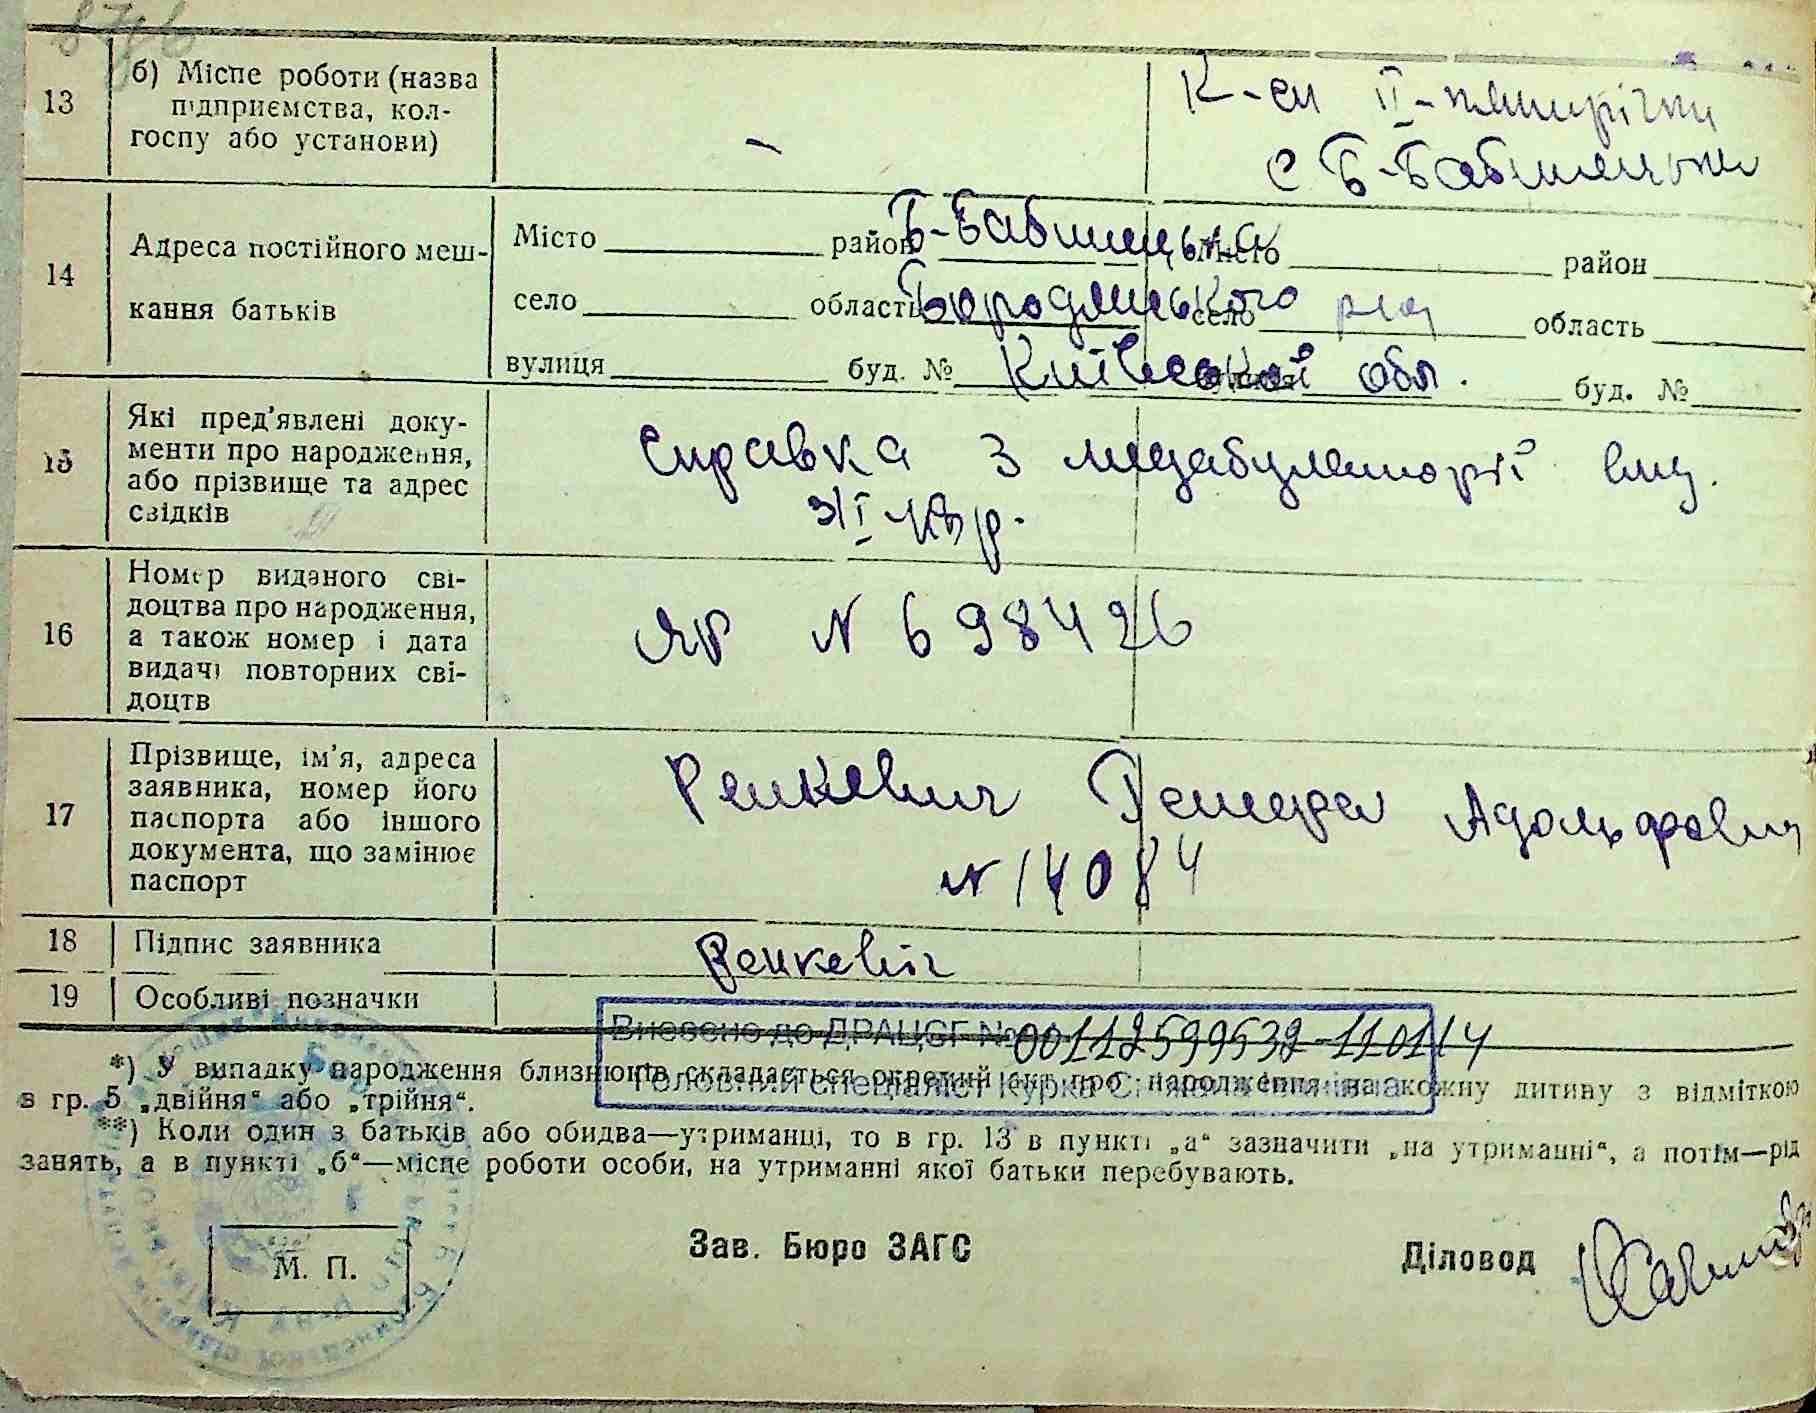 13 б) Місце роботи (назва
підприємства, кол-
госпу або установи)
— К-сп ІІ-п'ятирічки
с Б-Бабинецька
14 Адреса постійного меш-
кання батьків
Місто район Місто район
Б-Бабинецька
село область село область
Бородянського р-ну
вулиця буд. № вулиця буд. №
Київської обл.
15 Які пред'явлені доку-
менти про народження,
або прізвище та адрес
свідків
Справка з медабулаторії від.
16 Номер виданого сві-
доцтва про народження,
а також номер і дата
видачі повторних сві-
доцтв
ЯР N 698426
17 Прізвище, ім'я, адреса
заявника, номер його
паспорта або іншого
документа, що замінює
паспорт
Ренкевич Адольфович
N 14084
18 Підпис заявника Ренкевіч
19 Особливі позначки
Внесено до ДРАЦСГ № 00112599532-110114
Головний спеціаліст Курка
*) У випадку народження близнюків складається окремий акт про народження на кожну дитину з відміткою
в гр. 5 „двійня“ або „трійня“.
**) Коли один з батьків або обидва—утриманці, то в гр. 13 в пункті „а“ зазначити „на утриманні“, а потім—рід
занять, а в пункті „б“—місце роботи особи, на утриманні якої батьки перебувають.
М. П. Зав. Бюро ЗАГС Діловод